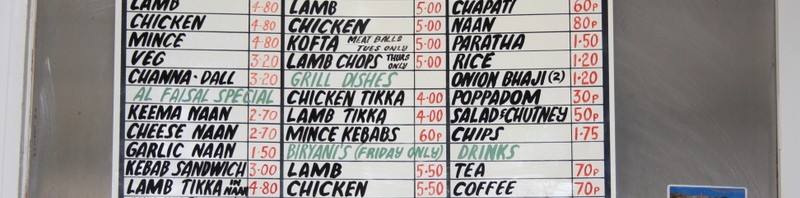 LAMB 4·80
CHICKEN 4·80
MINCE 4·80
VEG 3·20
CHANNA·DALL 3·20
AL FAISAL SPECIAL
KEEMA NAAN 2·70
CHEESE NAAN 2·70
GARLIC NAAN 1·50
KEBAB SANDWICH 3·00
LAMB TIKKA IN NAAN 4·80
LAMB 5·00
CHICKEN 5·00
KOFTA MEAT BALLS TUES ONLY 5·00
LAMB CHOPS THURS ONLY 5·00
GRILL DISHES
CHICKEN TIKKA 4·00
LAMB TIKKA 4·00
MINCE KEBABS 60p
BIRYANI'S (FRIDAY ONLY)
LAMB 5·50
CHICKEN 5·50
CHAPATI 60p
NAAN 80p
PARATHA 1·50
RICE 1·20
ONION BHAJI (2) 1·20
POPPADOM 30p
SALAD & CHUTNEY 50p
CHIPS 1·75
DRINKS
TEA 70p
COFFEE 70p